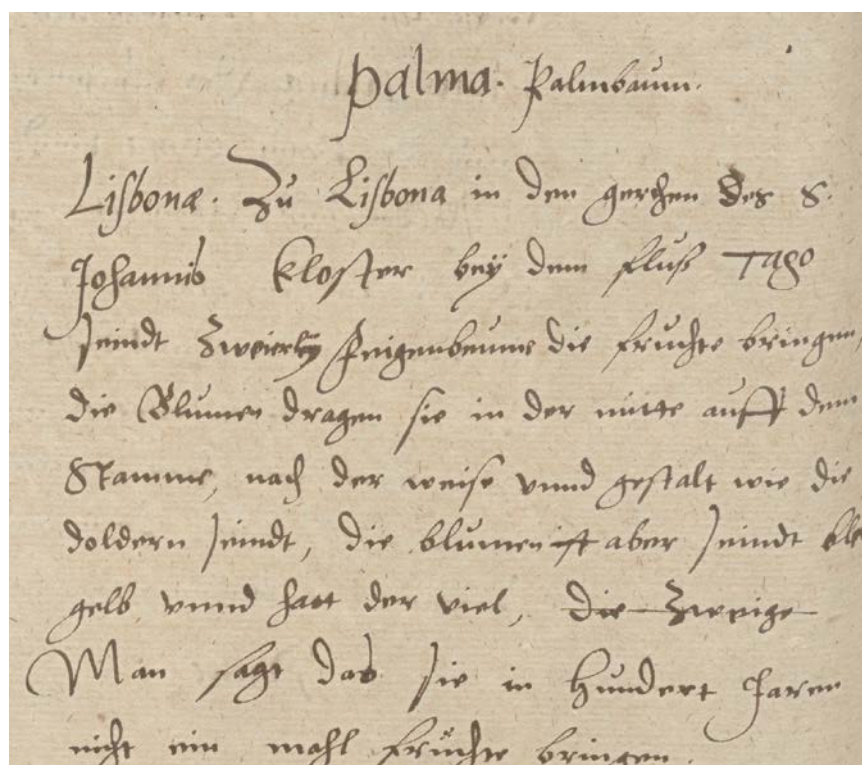 Palma. Palmbaum.
Lisbonæ. Zu Lisbona in dem gerthen des S.
Johannis Kloster bey dem fluß Tago
seindt Zweierley feigenbeume die fruchte bringen,
die Blumen dragen sie in der mitte auff dem
Stamme, nach der weise vnnd gestalt wie die
doldern seindt, die blumen ist aber seindt ble
gelb vnnd hatt der viel, die Zweige
Man sagt das sie in hundert Jaren
nicht ein mahl fruchte bringen.